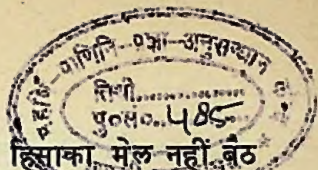 पाणिनि अनुसन्धान
तिथी..............
पु०सं०..485
हिंसाका मेल नहीं बैठ